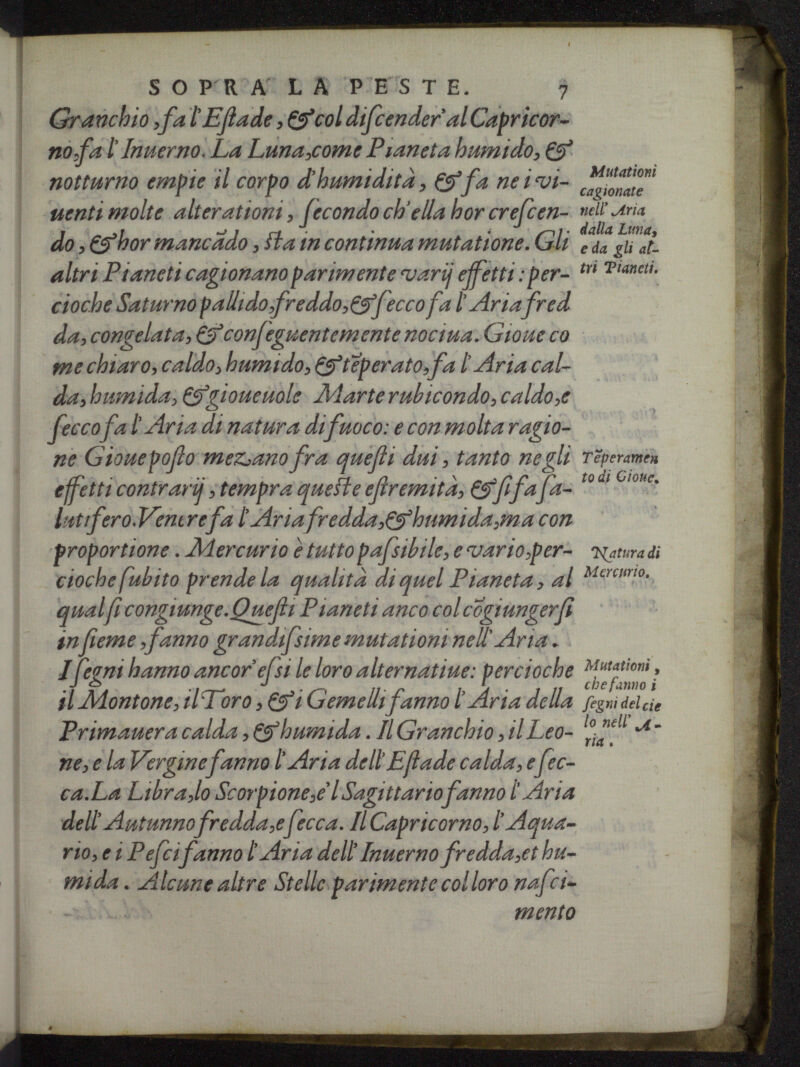 SOPRA LA PESTE. 7
Granchio, fa l'Eſtade, & col diſcender' al Capricor-
no, fa l'Inuerno. La Luna, come Pianeta humido, &
notturno empie il corpo d'humidità, & fa ne i vi-
uenti molte alterationi, ſecondo ch'ella hor creſcen-
do, & hor mancãdo, ſta in continua mutatione. Gli
altri Pianeti cagionano parimente varij effetti: per-
cioche Saturno pallido, freddo, & ſecco fa l'Aria fred
da, congelata, & conſeguentemente nociua. Gioue co
me chiaro, caldo, humido, & tẽperato, fa l'Aria cal-
da, humida, & gioueuole Marte rubicondo, caldo, e
ſecco fa l'Aria di natura di fuoco: e con molta ragio-
ne Gioue poſto mezano fra queſti dui, tanto negli
effetti contrarij, tempra queſte eſtremità, & ſi fa ſa-
lutifero. Venere fa l'Aria fredda, & humida, ma con
proportione. Mercurio è tutto paſsibile, e vario, per-
cioche ſubito prende la qualità di quel Pianeta, al
qual ſi congiunge. Queſti Pianeti anco col cõgiungerſi
inſieme, fanno grandiſsime mutationi nell'Aria.
I ſegni hanno ancor'eſsi le loro alternatiue: percioche
il Montone, il Toro, & i Gemelli fanno l'Aria della
Primauera calda, & humida. Il Granchio, il Leo-
ne, e la Vergine fanno l'Aria dell'Eſtade calda, e ſec-
ca. La Libra, lo Scorpione, e'l Sagittario fanno l'Aria
dell'Autunno fredda, e ſecca. Il Capricorno, l'Aqua-
rio, e i Peſci fanno l'Aria dell'Inuerno fredda, et hu-
mida. Alcune altre Stelle parimente col loro naſci-
mento
Mutationi
cagionate
nell'Aria
dalla Luna,
e da gli al-
tri Pianeti.
Tẽperamen
to di Gioue.
Natura di
Mercurio.
Mutationi,
che fanno i
ſegni del cie
lo nell'A-
ria.